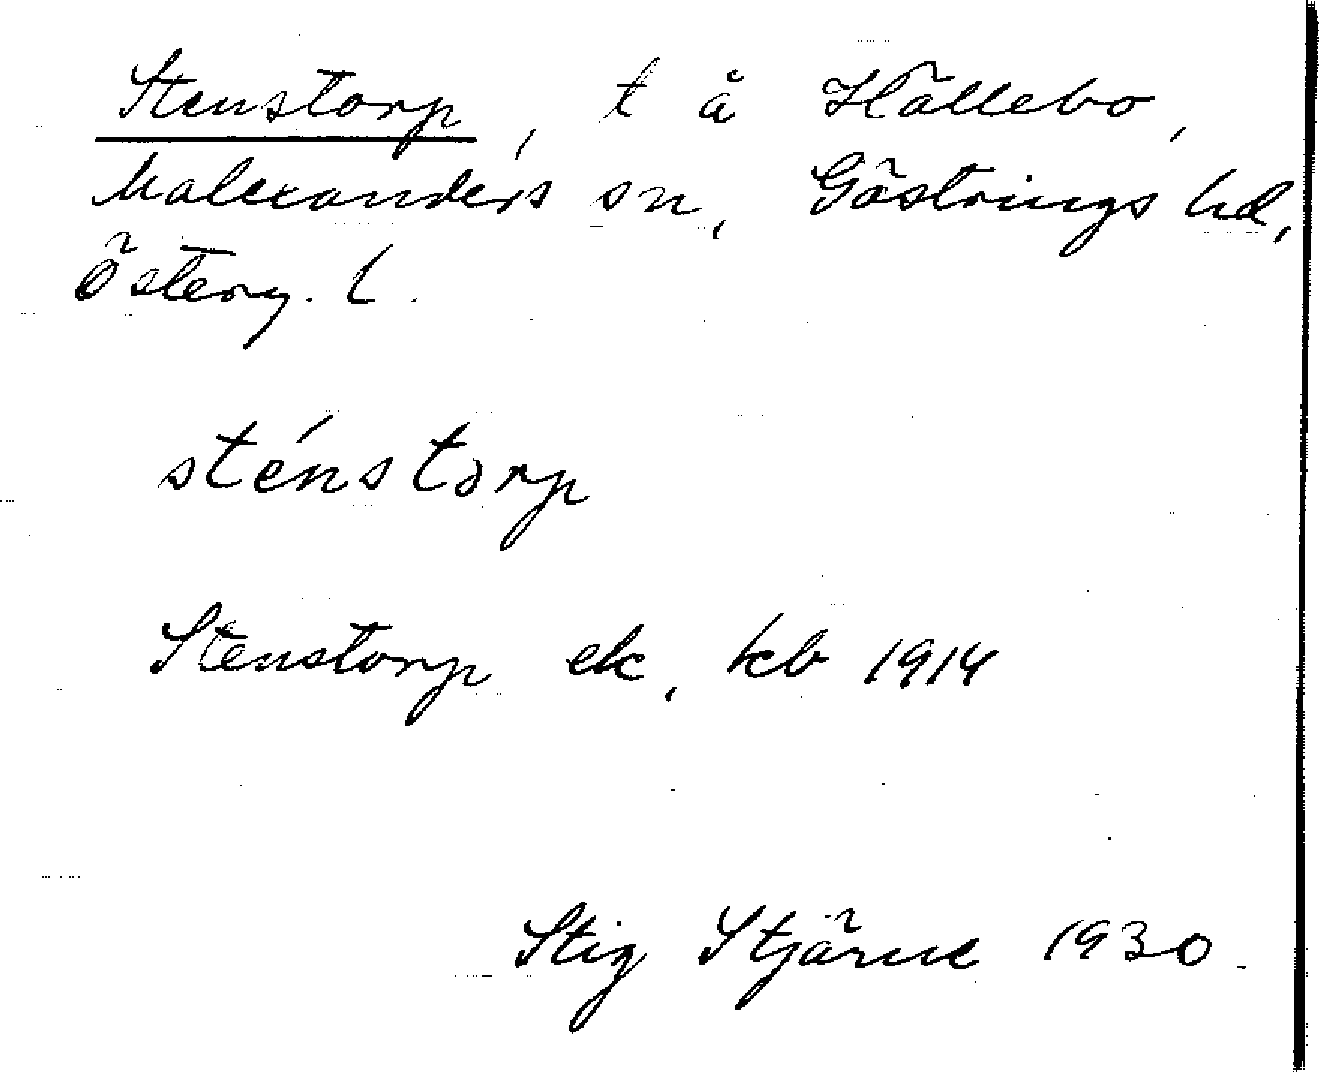 Stenstorp, t å Hällebo,
Malexanders sn, Göstrings hd,
Österg. l.
sténstorp
Stenstorp ek, kb 1914
Stig Stjärne 1930